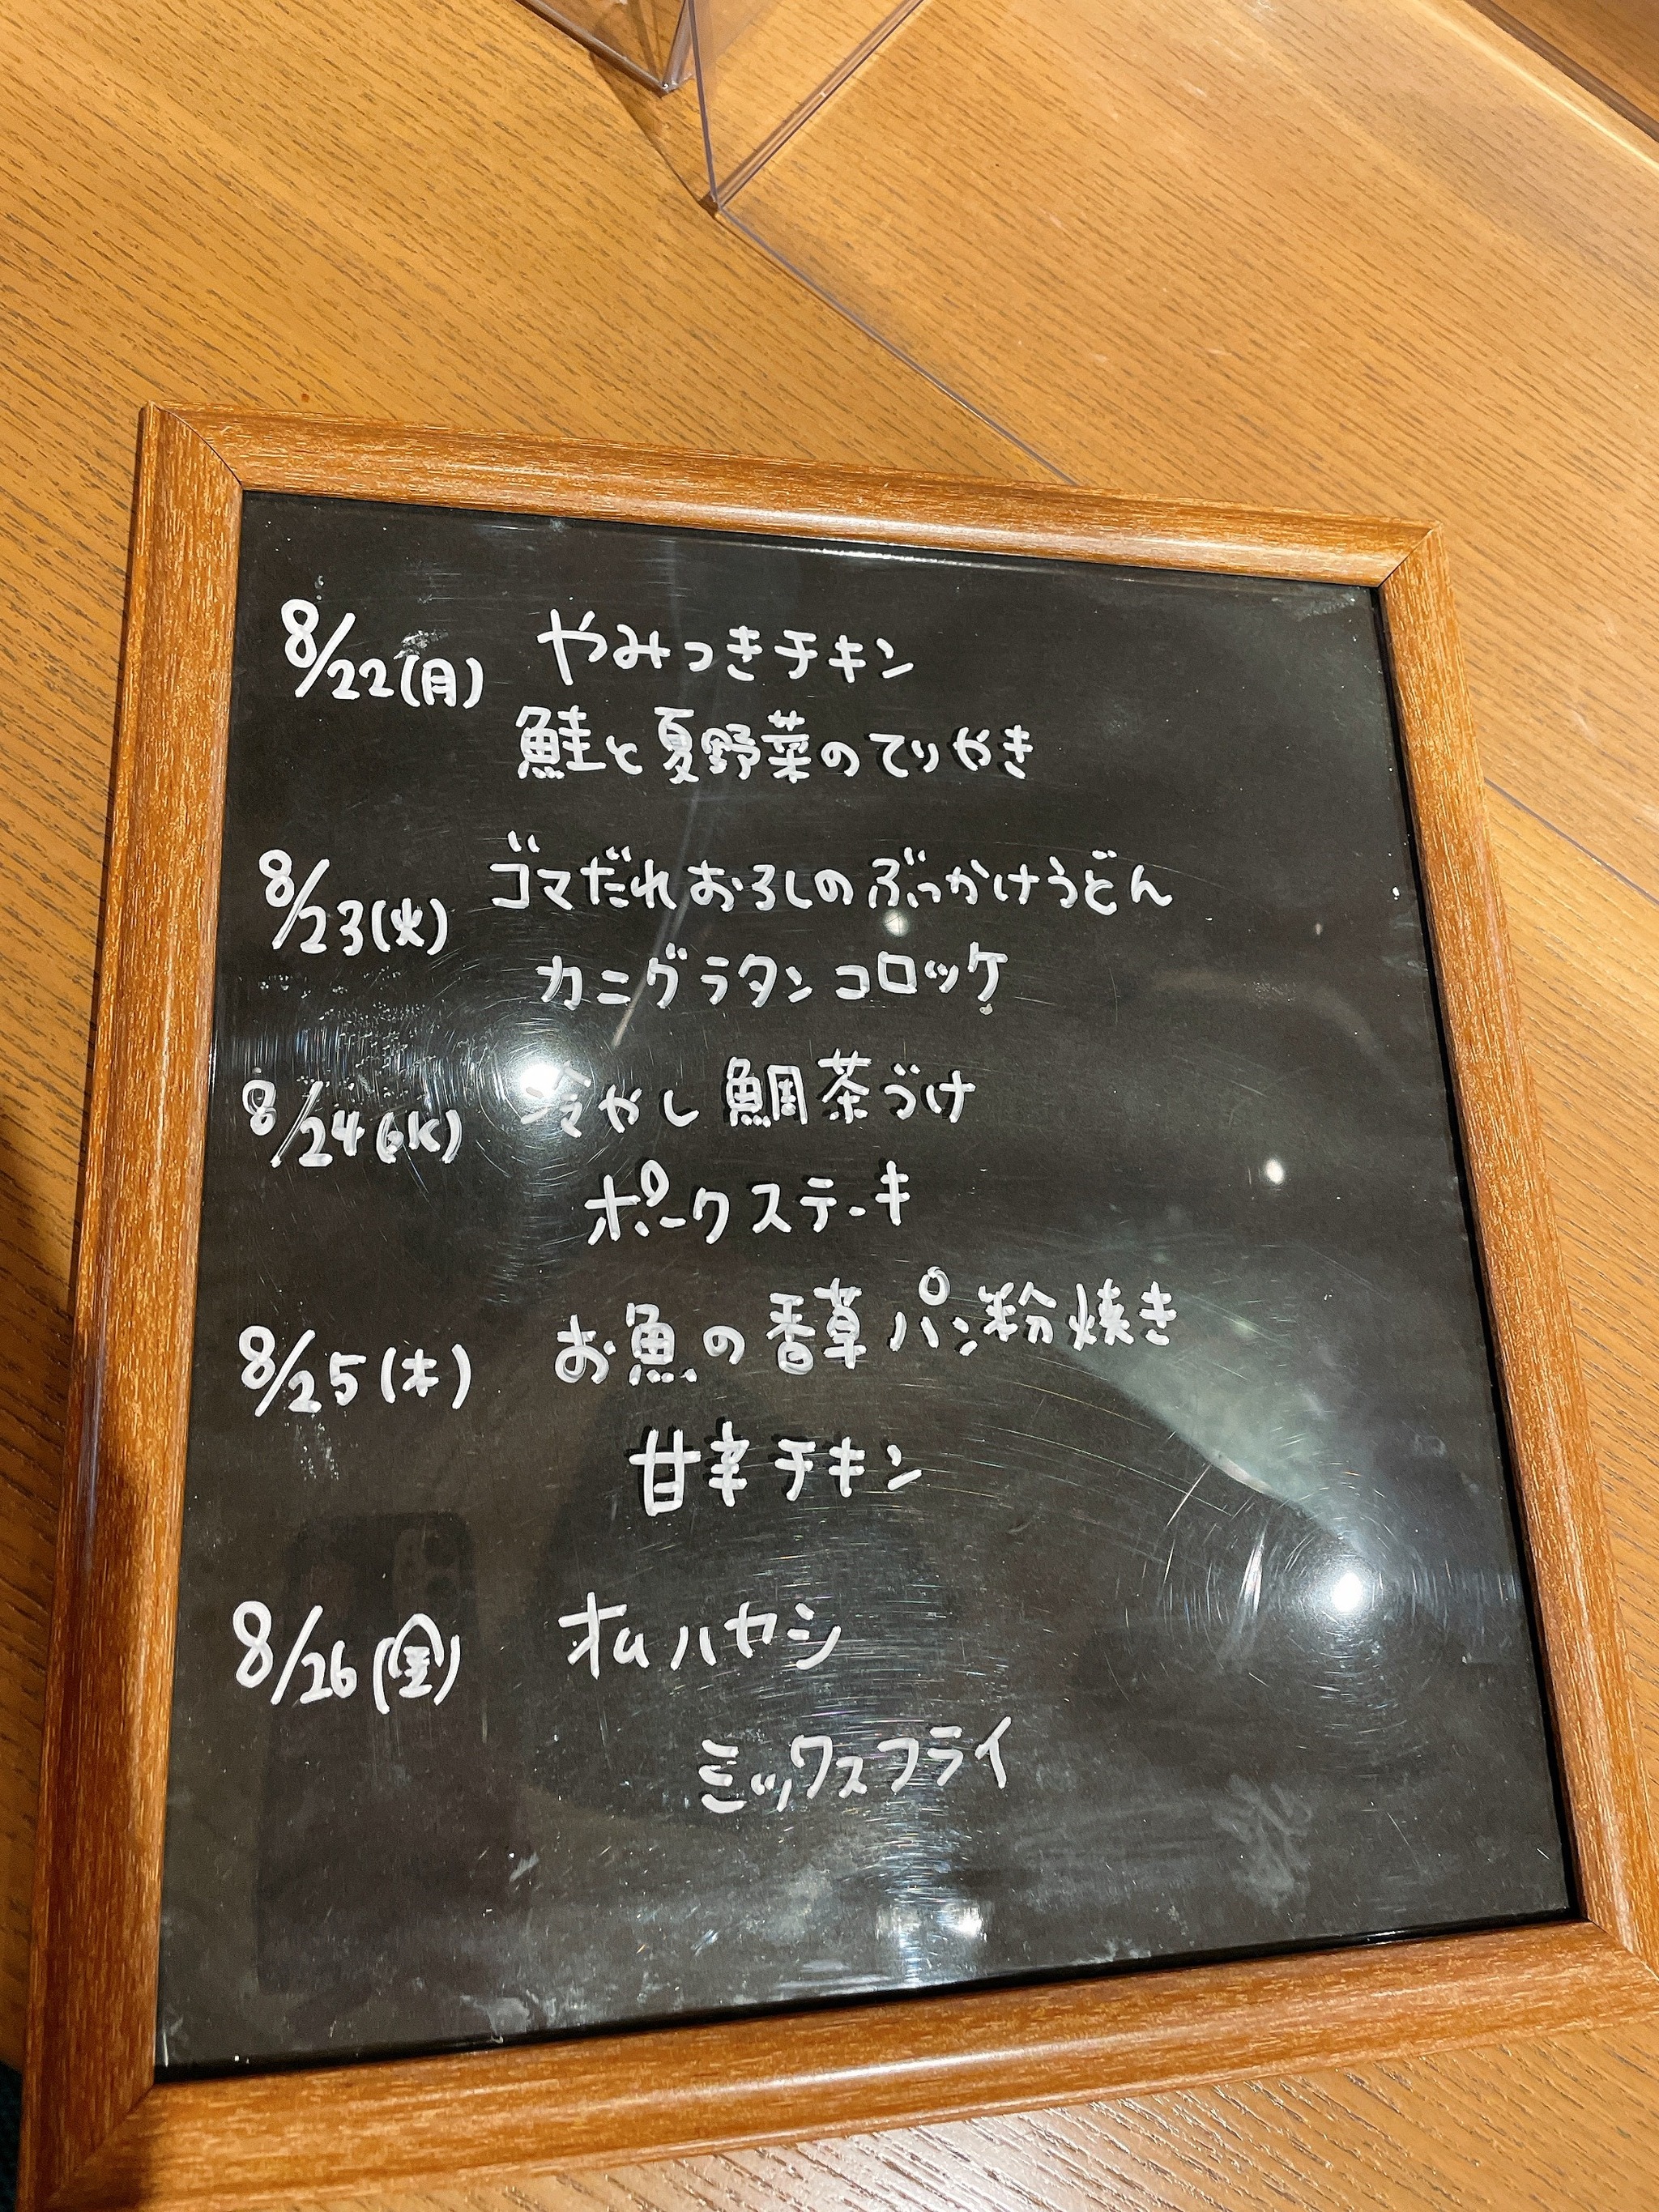 8/22(月) やみつきチキン
鮭と夏野菜のてりやき
8/23(火) ゴマだれおろしのぶっかけうどん
カニグラタンコロッケ
8/24(水) 冷やし鯛茶づけ
ポークステーキ
8/25(木) お魚の香草パン粉焼き
甘辛チキン
8/26(金) オムハヤシ
ミックスフライ